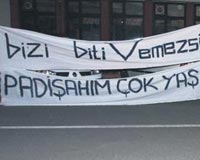 bizi bitiVemezsi
PADİŞAHIM ÇOK YAŞ